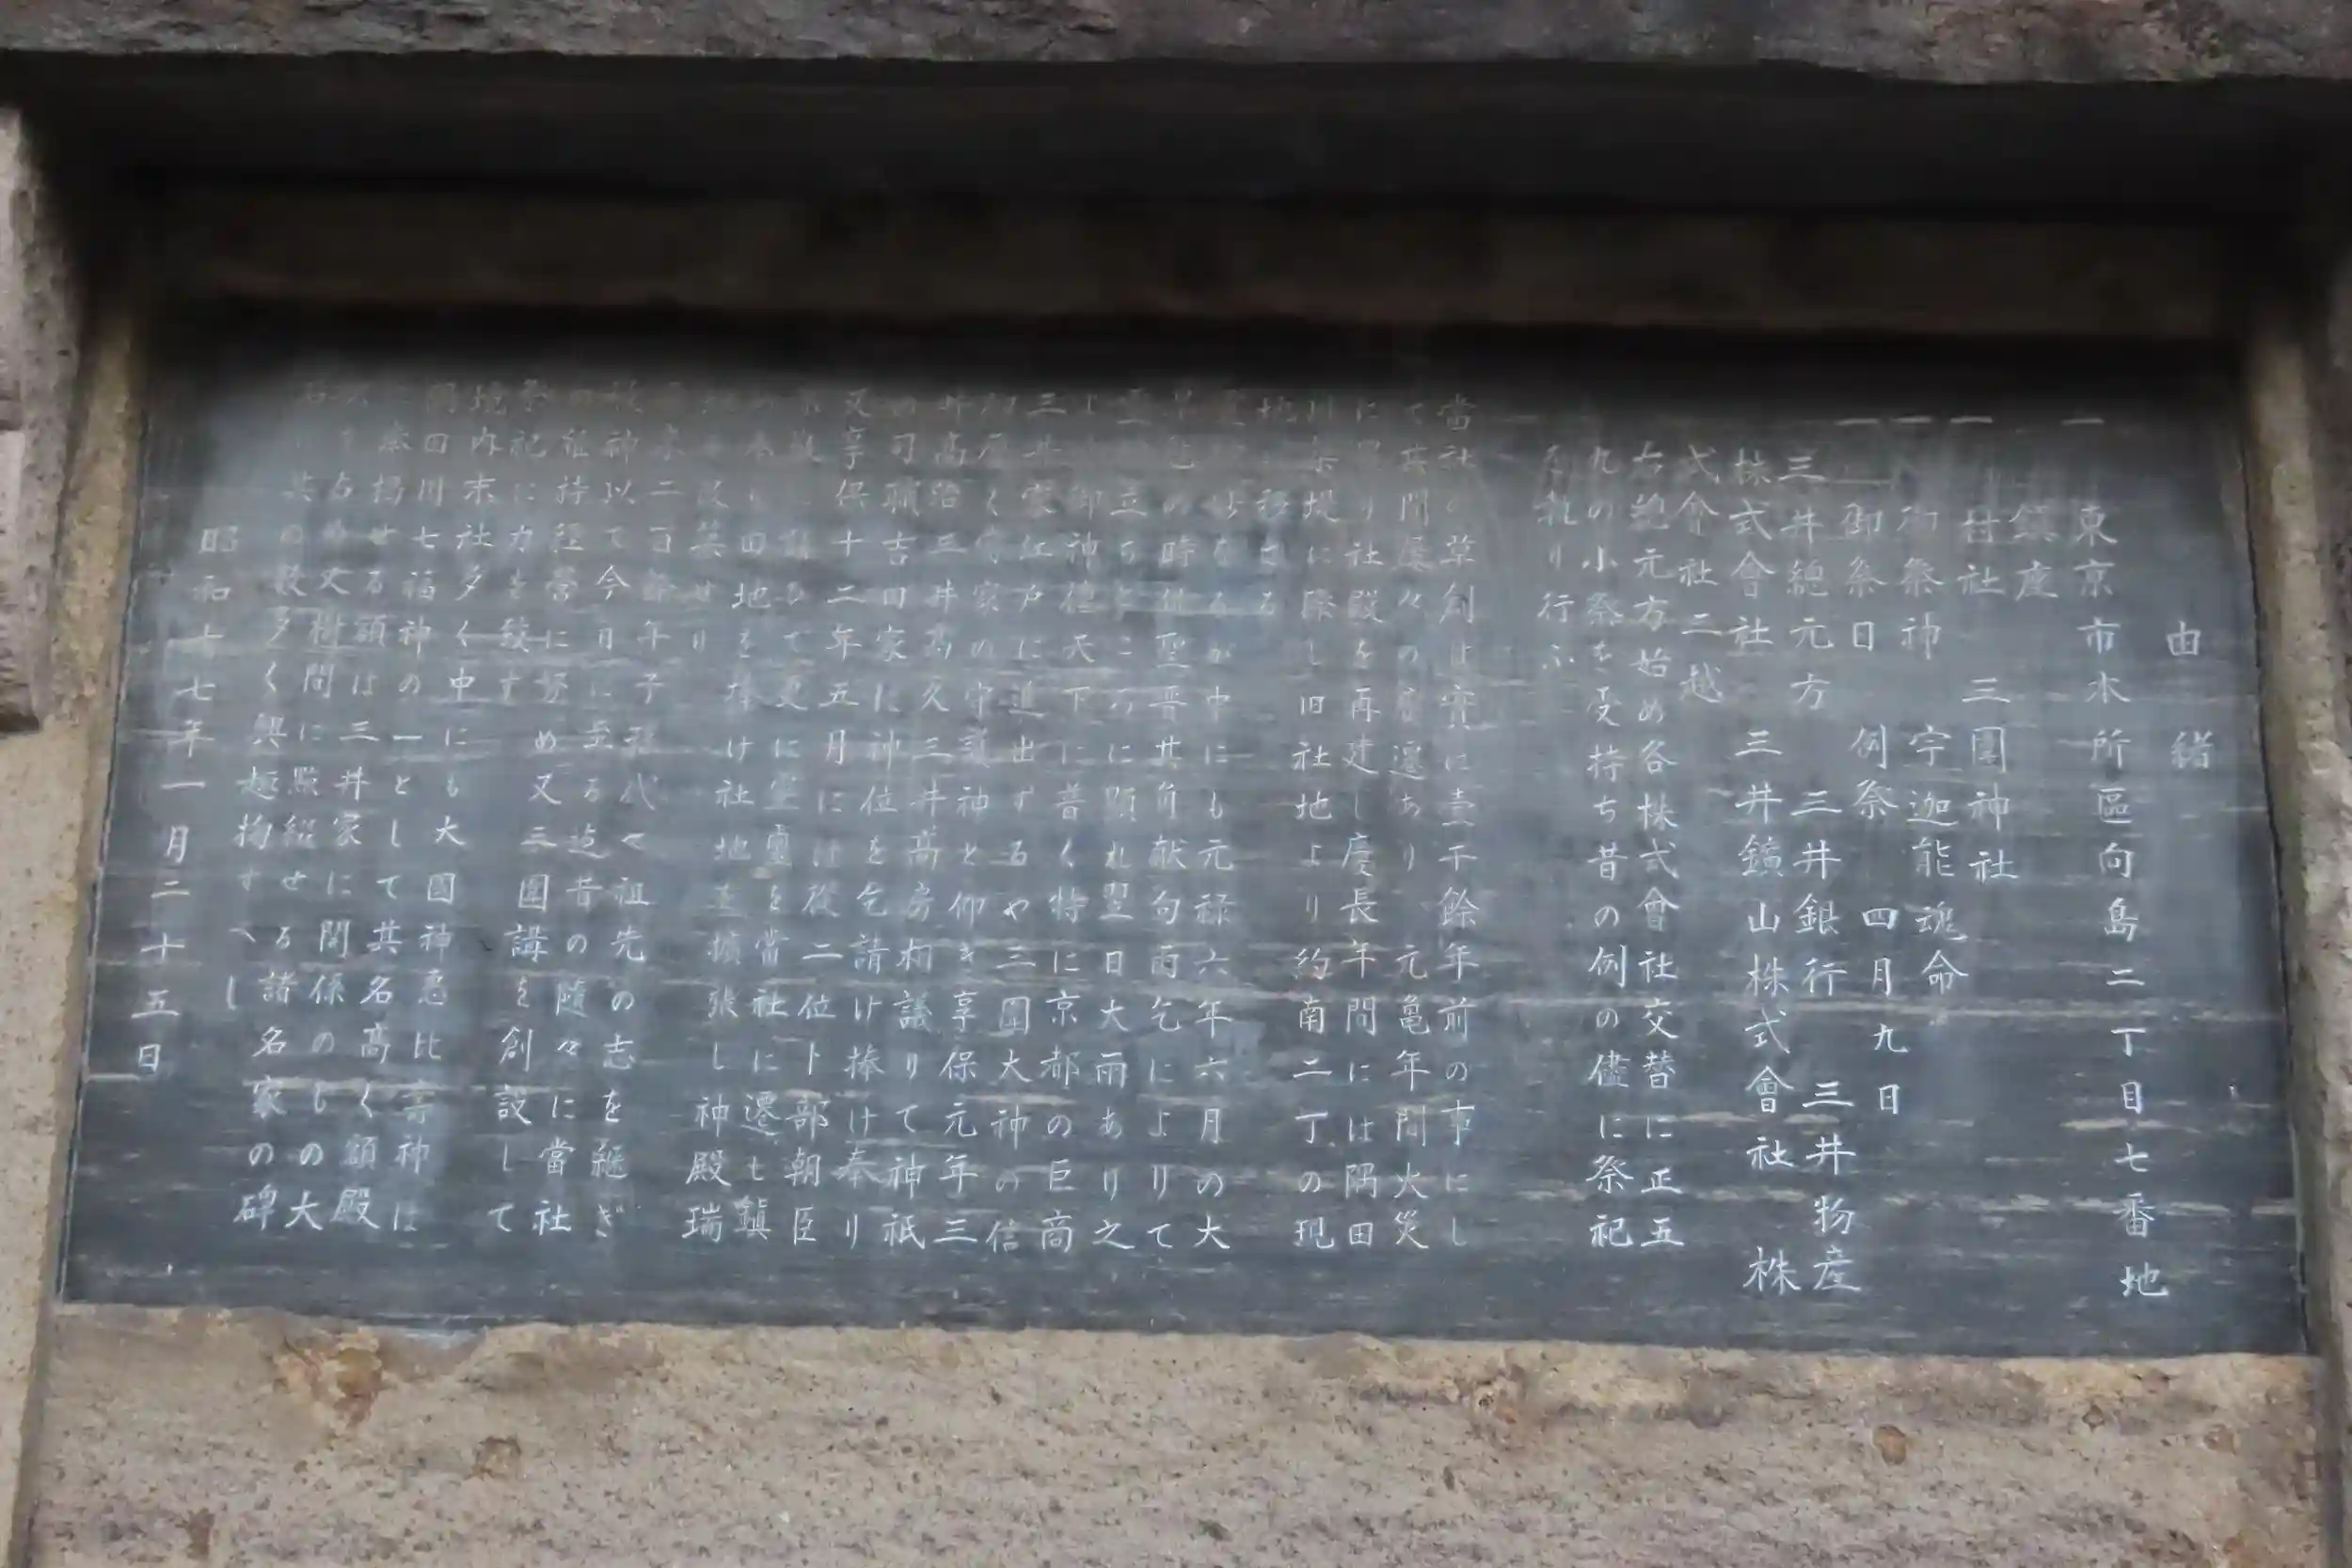 由緒
東京市本所區向島二丁目七番地
鎮座
一 村社 三圍神社
一 御祭神 宇迦能魂命
一 御祭日 例祭 四月九日
三井總元方 三井銀行 三井物産
株式會社 三井鑛山株式會社 株
式會社三越
右總元方始め各株式會社交替に正五
九の小祭を受持ち昔の例の儘に祭祀
執り行ふ
當社の草創は實に壹千餘年前の事にし
て其間屡々の變遷あり 元亀年間火災
に罹り社殿を再建し慶長年間には隅田
川築堤に際し旧社地より約南二丁の現
地に移せる
中にも元禄六年六月の大
の時俳聖晋其角献句雨乞によりて
立ちどころに顕れ翌日大雨あり之
御神徳天下に普く特に京都の巨商
三井家江戸に進出するや三圍大神の信
く家の守護神と仰き享保元年三
井高治三井高久三井高房相議りて神祇
の司職吉田家に神位を乞請け捧け奉り
又享保十二年五月には從二位卜部朝臣
て更に霊璽を當社に遷し鎮
田地を捧け社地を擴張し神殿瑞
改築せり
來二百餘年子孫代々祖先の志を継ぎ
敬神以て今日に至る迠昔の隨々に當社
の維持經營に努め又三圍講を創設して
祭祀に力を致す
境内末社多く中にも大國神恵比壽神は
隅田川七福神の一として其名高く額殿
掲せる額は三井家に関係のもの大
樹間に點綴せる諸名家の碑
其の数多く興趣掬すへし
昭和十七年一月二十五日